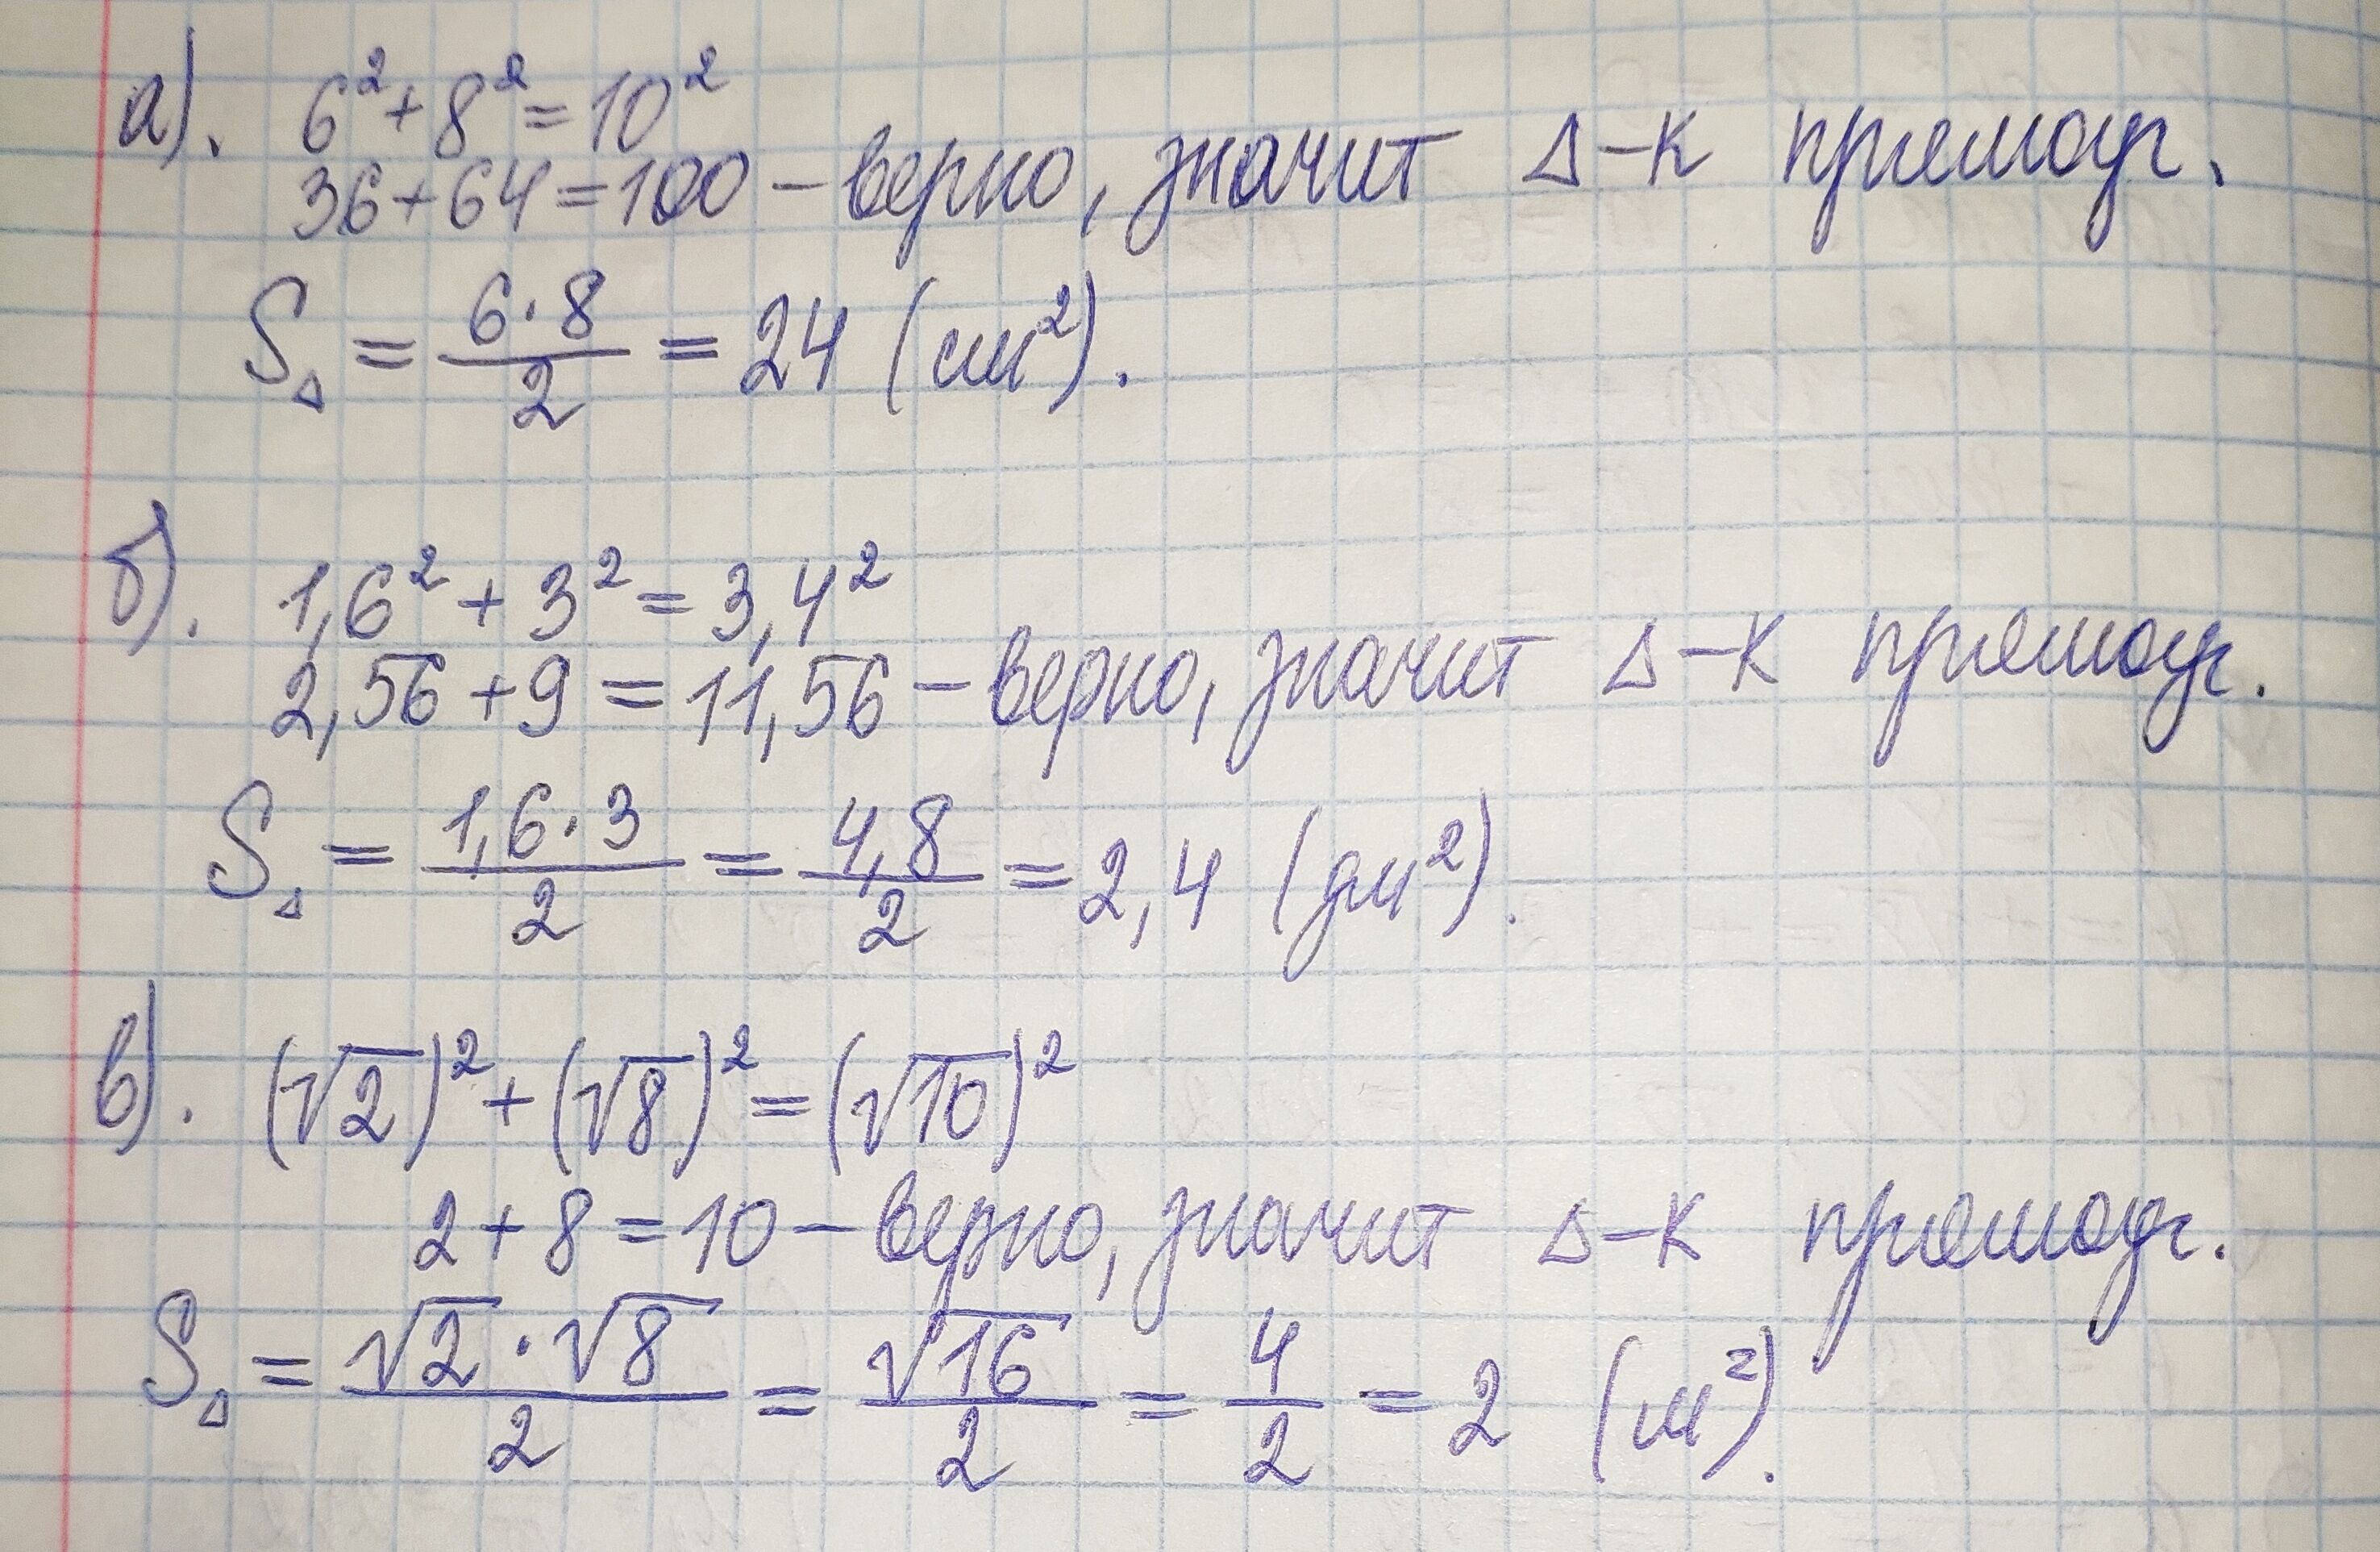 а). 6² + 8² = 10²
36 + 64 = 100 – верно, значит Δ-к прямоуг.
S_Δ = (6 · 8)/2 = 24 (см²).
б). 1,6² + 3² = 3,4²
2,56 + 9 = 11,56 – верно, значит Δ-к прямоуг.
S_Δ = (1,6 · 3)/2 = 4,8/2 = 2,4 (дм²).
в). (√2)² + (√8)² = (√10)²
2 + 8 = 10 – верно, значит Δ-к прямоуг.
S_Δ = (√2 · √8)/2 = √16/2 = 4/2 = 2 (м²).